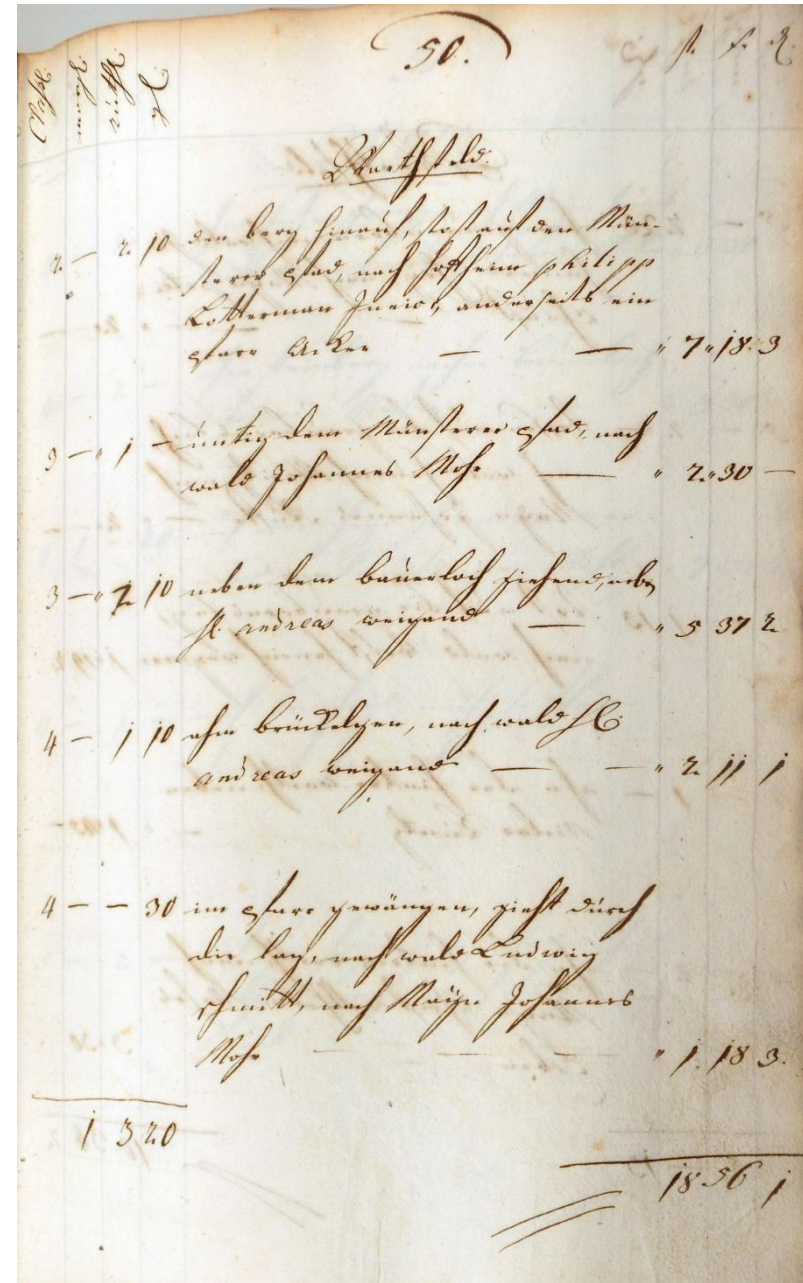 50.
fl. x. d.
Claß
Morgen
Viertel
Rth.
Warthfeld.
2 — 2 10 den berg hinauf, stost auf den Mün-
sterer pfad, nach hoffheim philipp
Lotterman Junior, anderseits ein
pfarr Acker — — " 7 " 18 3
3 — " 1 — untig dem Münsterer pfad, nach
wald Johannes Mohr — " 2 " 30 —
3 — " 2 10 neben dem bauerloch ziehend, neben
H: andreas weigand — " 5 37 2
4 — 1 10 ahm brückelgen, nach wald H:
andreas weigand — — " 2 11 1
4 — — 30 im pfarr gewängen, zieht durch
die lag, nach wald Ludwig
schmitt, nach Mayn Johannes
Mohr — — — " 1 18 3.
1 3 20
18 56 1